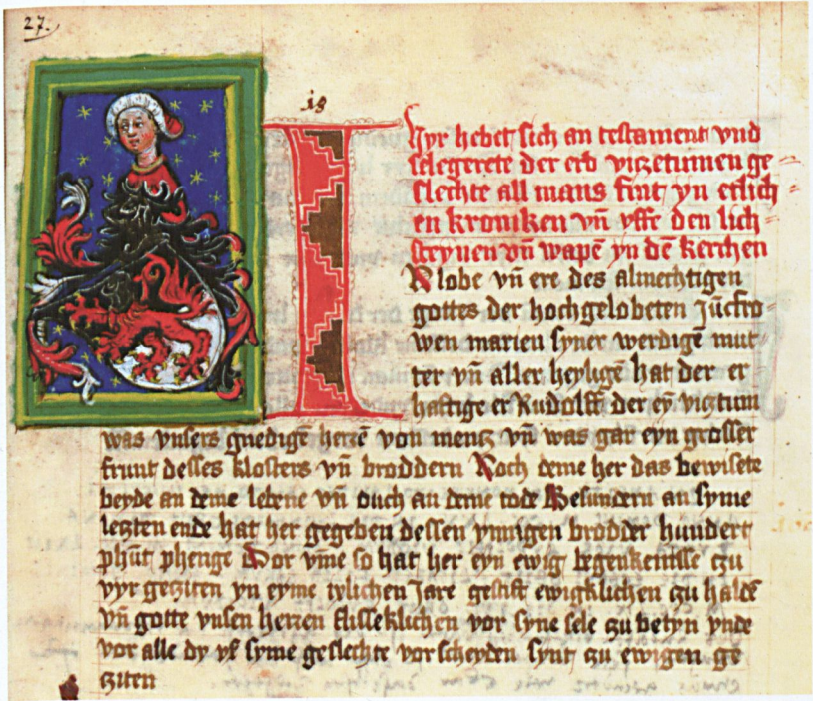 27.
is
Hyr hebet sich an testament vnd
selegerete der erb viczetumen ge=
slechte all mans fint yn etlich=
en kroniken vn̄ vffe den lich=
steynen vn̄ wapē yn dē kerchen
IN lobe vn̄ ere des almechtigen
gottes der hochgelobeten Jūcfro=
wen marien syner werdigē mut=
ter vn̄ aller heyligē hat der er
hafftige er Rudolff der eȳ viztum
was vnsers gnedigē herrē von mentz vn̄ was gar eyn grosser
frunt desses klosters vn̄ broddern Noch deme her das bewisete
beyde an deme lebene vn̄ ouch an deme tode Besundern an syme
letzten ende hat her gegeben dessen ynnigen brodder hundert
phūt phenge Dor vm̄e so hat her eyn ewig begenkenisse czu
vyr geziten yn eyme iylichen Jare gestift ewigklichen czu haldē
vn̄ gotte vnsen herren flisseklichen vor syne sele zu betyn vnde
vor alle dy vß syme geslechte vorscheyden synt zu ewigen ge
ziten